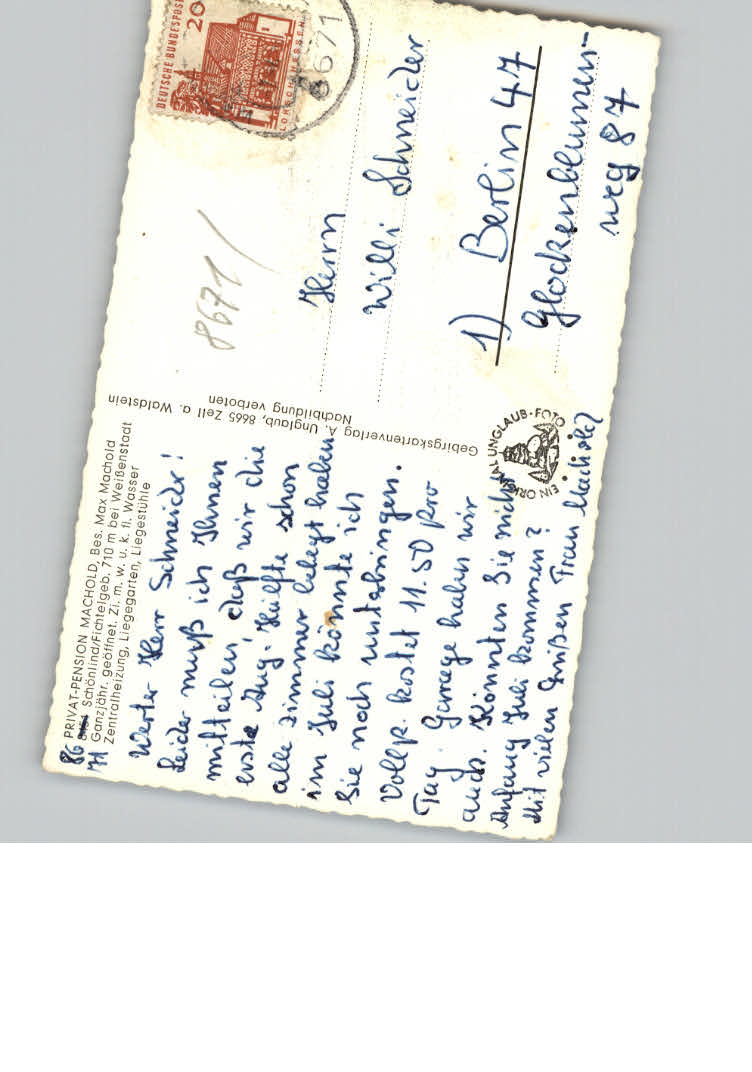 PRIVAT-PENSION MACHOLD, Bes. Max Machold
86 Schönlind/Fichtelgeb. 710 m bei Weißenstadt
71 Ganzjähr. geöffnet. Zi. m. w. u. k. fl. Wasser
Zentralheizung, Liegegarten, Liegestühle
Werter Herr Schneider!
Leider muß ich Ihnen
mitteilen, daß wir die
erste Aug. Hälfte schon
alle Zimmer belegt haben
im Juli könnte ich
Sie noch unterbringen.
Vollp. kostet 11.50 pro
Tag. Garage haben wir
auch. Könnten Sie nicht
Anfang Juli kommen?
Mit vielen Grüßen Frau Machold
Gebirgskartenverlag A. Unglaub, 8665 Zell a. Waldstein
Nachbildung verboten
EIN ORIGINAL UNGLAUB-FOTO
DEUTSCHE BUNDESPOST
20
LORSCH HESSEN
8671
8671/
Herrn
Willi Schneider
1) Berlin 47
Glockenblumen-
weg 87